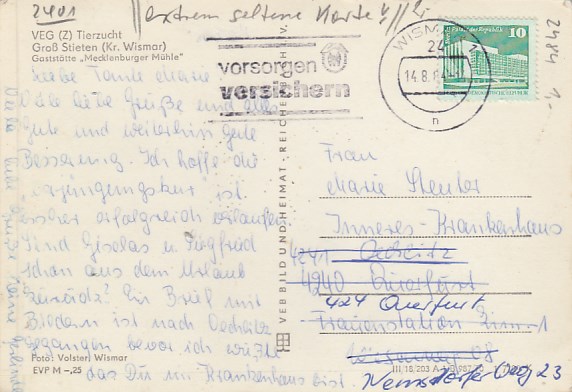 2401 //extrem seltene Karte!//
VEG (Z) Tierzucht
Groß Stieten (Kr. Wismar)
Gaststätte „Mecklenburger Mühle"
vorsorgen
versichern
WISMAR 1
24
14.8.
n
Palast der Republik 10
2484 1.-
Liebe Tante Marie!
Viele liebe Grüße und alles
Gute und weiterhin gute
Besserung. Ich hoffe die
"Verjüngungskur" ist
bisher erfolgreich verlaufen.
Sind Giselas u. Siegfried
schon aus dem Urlaub
zurück? Ein Brief mit
Bildern ist nach Oechlitz
gegangen bevor ich wußte
das Du im Krankenhaus bist.
Frau
Marie Stenter
Inneres-Krankenhaus
4241 Oechlitz
4240 Querfurt
424 Querfurt
Frauenstation Zim. 1
Nemsdorfer Weg 23
VEB BILD UND HEIMAT, REICHENBACH I. V.
Foto: Volster, Wismar
EVP M –,25
III/18/203